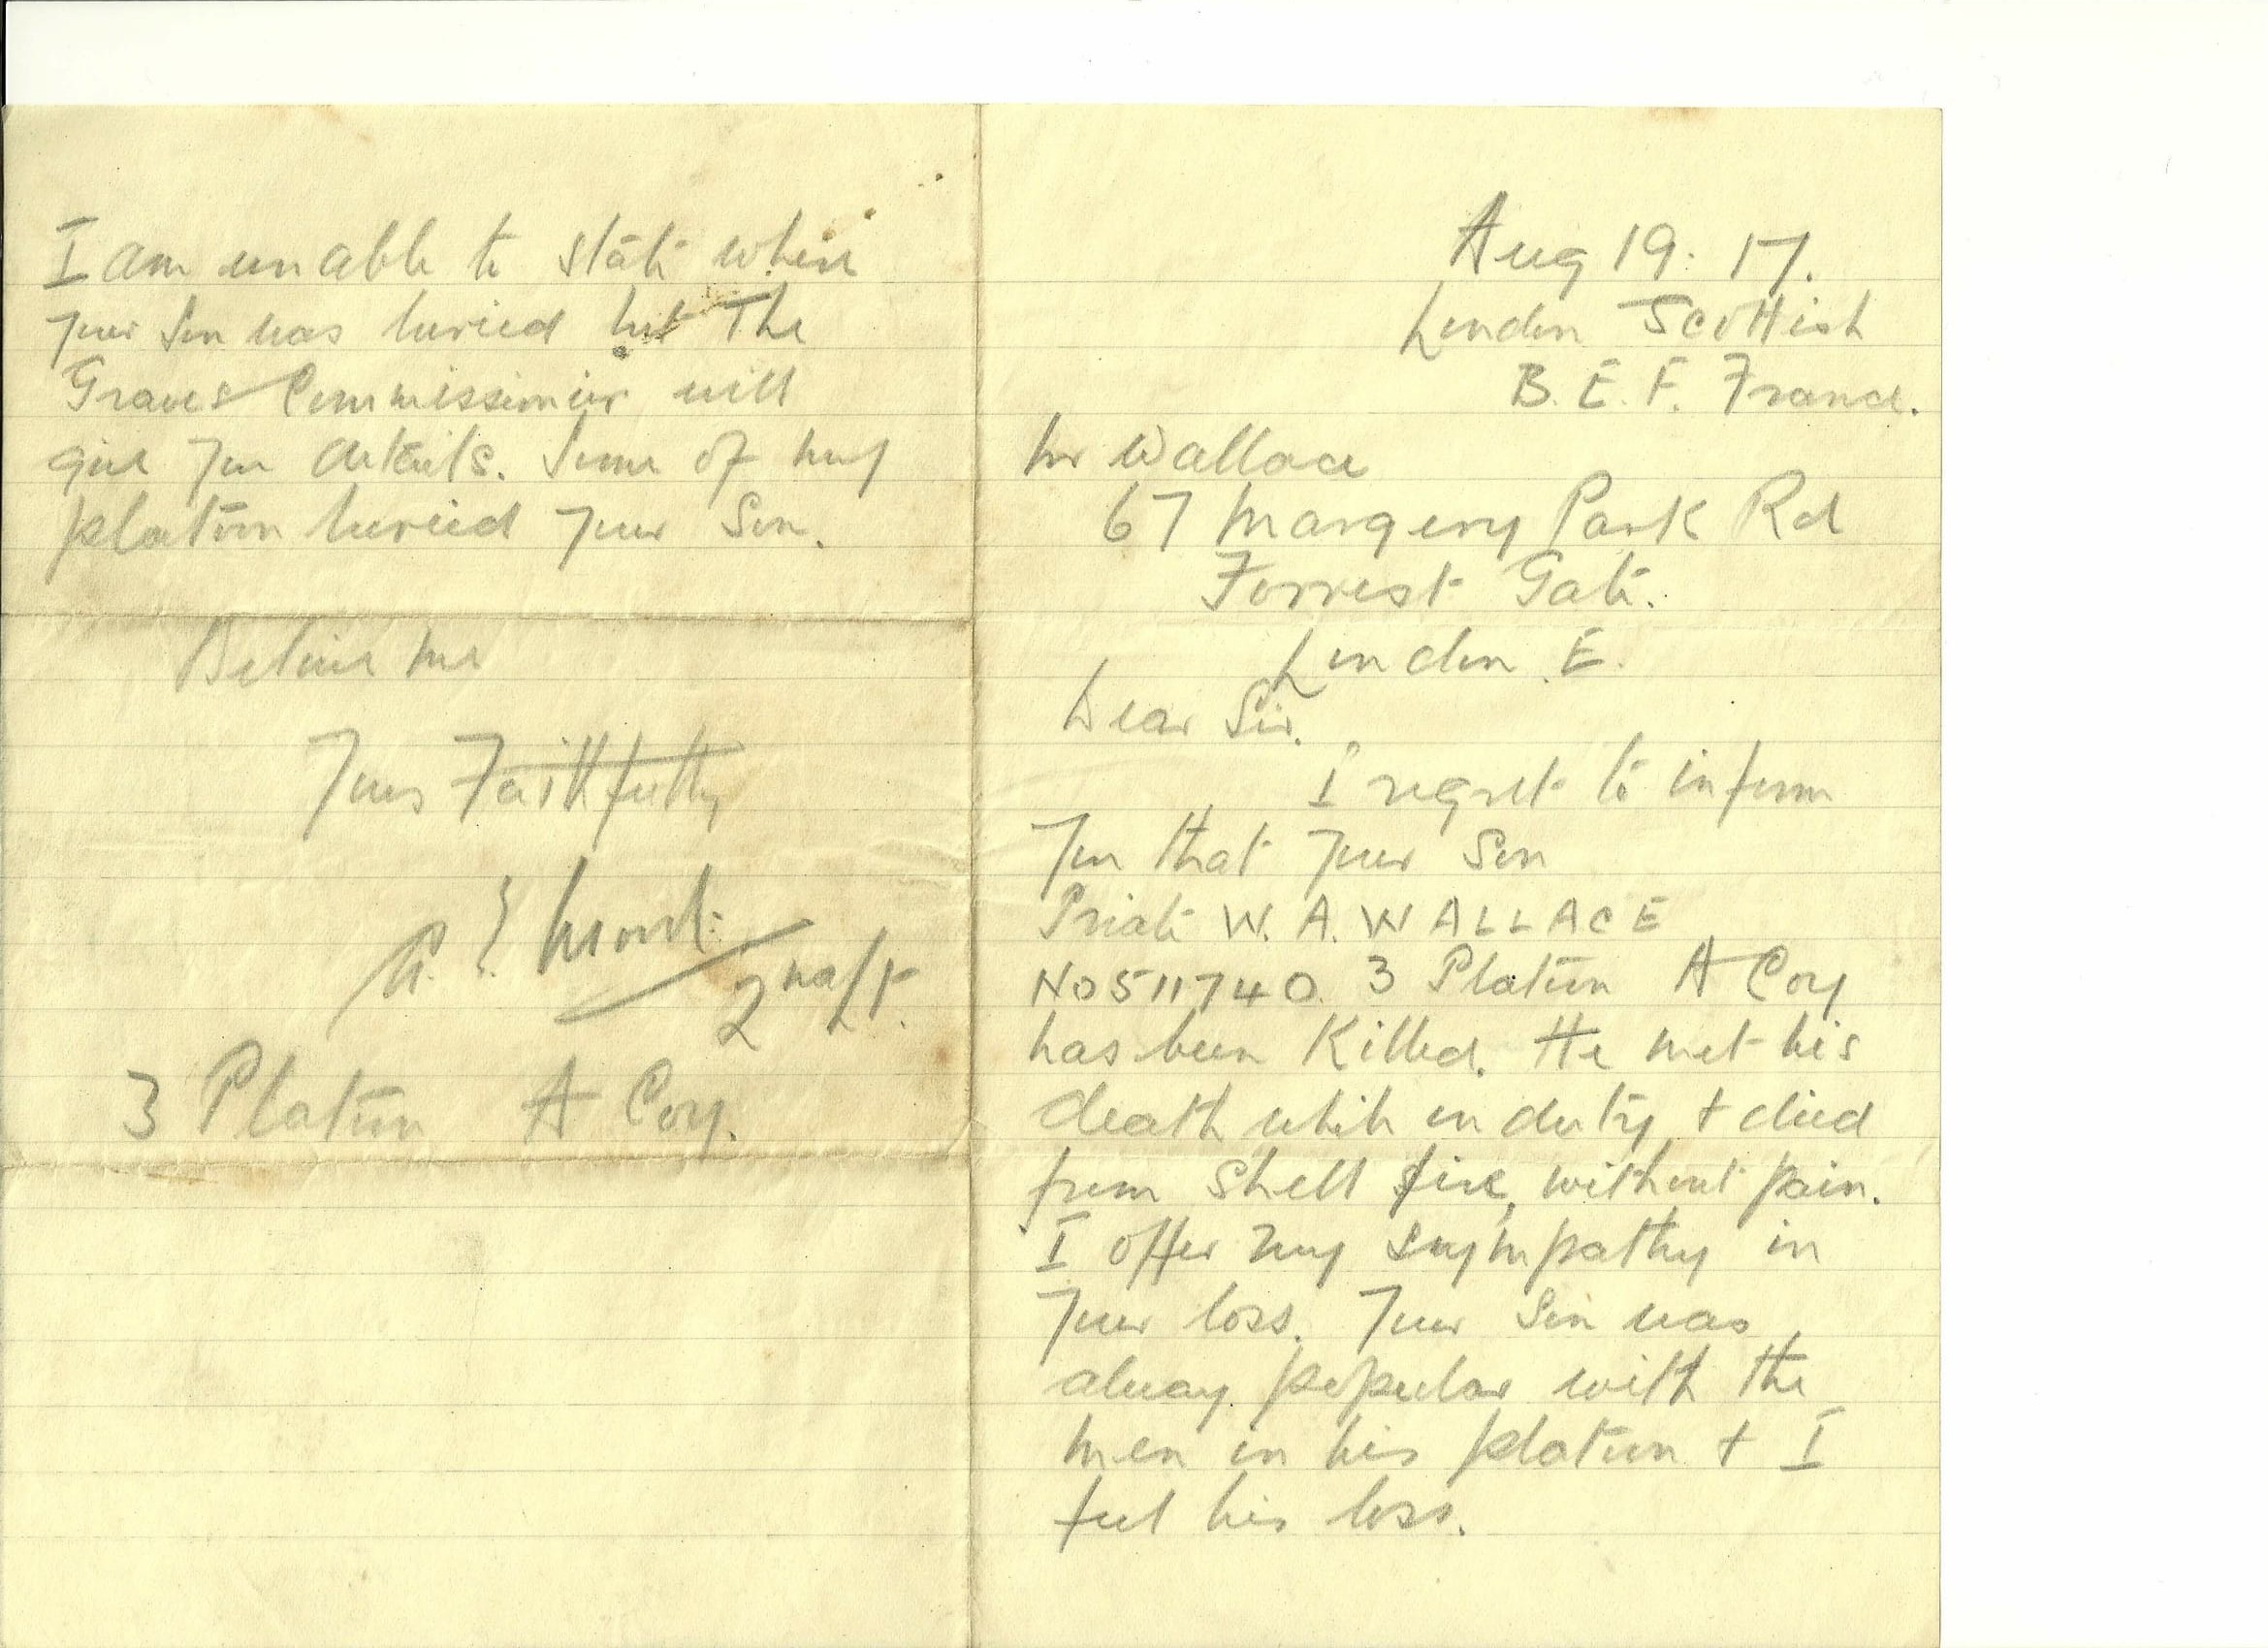 Aug 19. 17.
London Scottish
B. E. F. France.
Mr Wallace
67 Margery Park Rd
Forrest Gate.
London E.
Dear Sir.
I regret to inform
you that your Son
Private W. A. WALLACE
No 511740. 3 Platoon A Coy
has been Killed. He met his
death while on duty, + died
from Shell fire, without pain.
I offer my sympathy in
your loss. Your Son was
alway popular with the
men in his platoon + I
feel his loss.
I am unable to state where
your Son was buried but The
Graves Commissioner will
give you details. Some of my
platoon buried your Son.
Believe me
Yours Faithfully
2nd Lt.
3 Platoon A Coy.